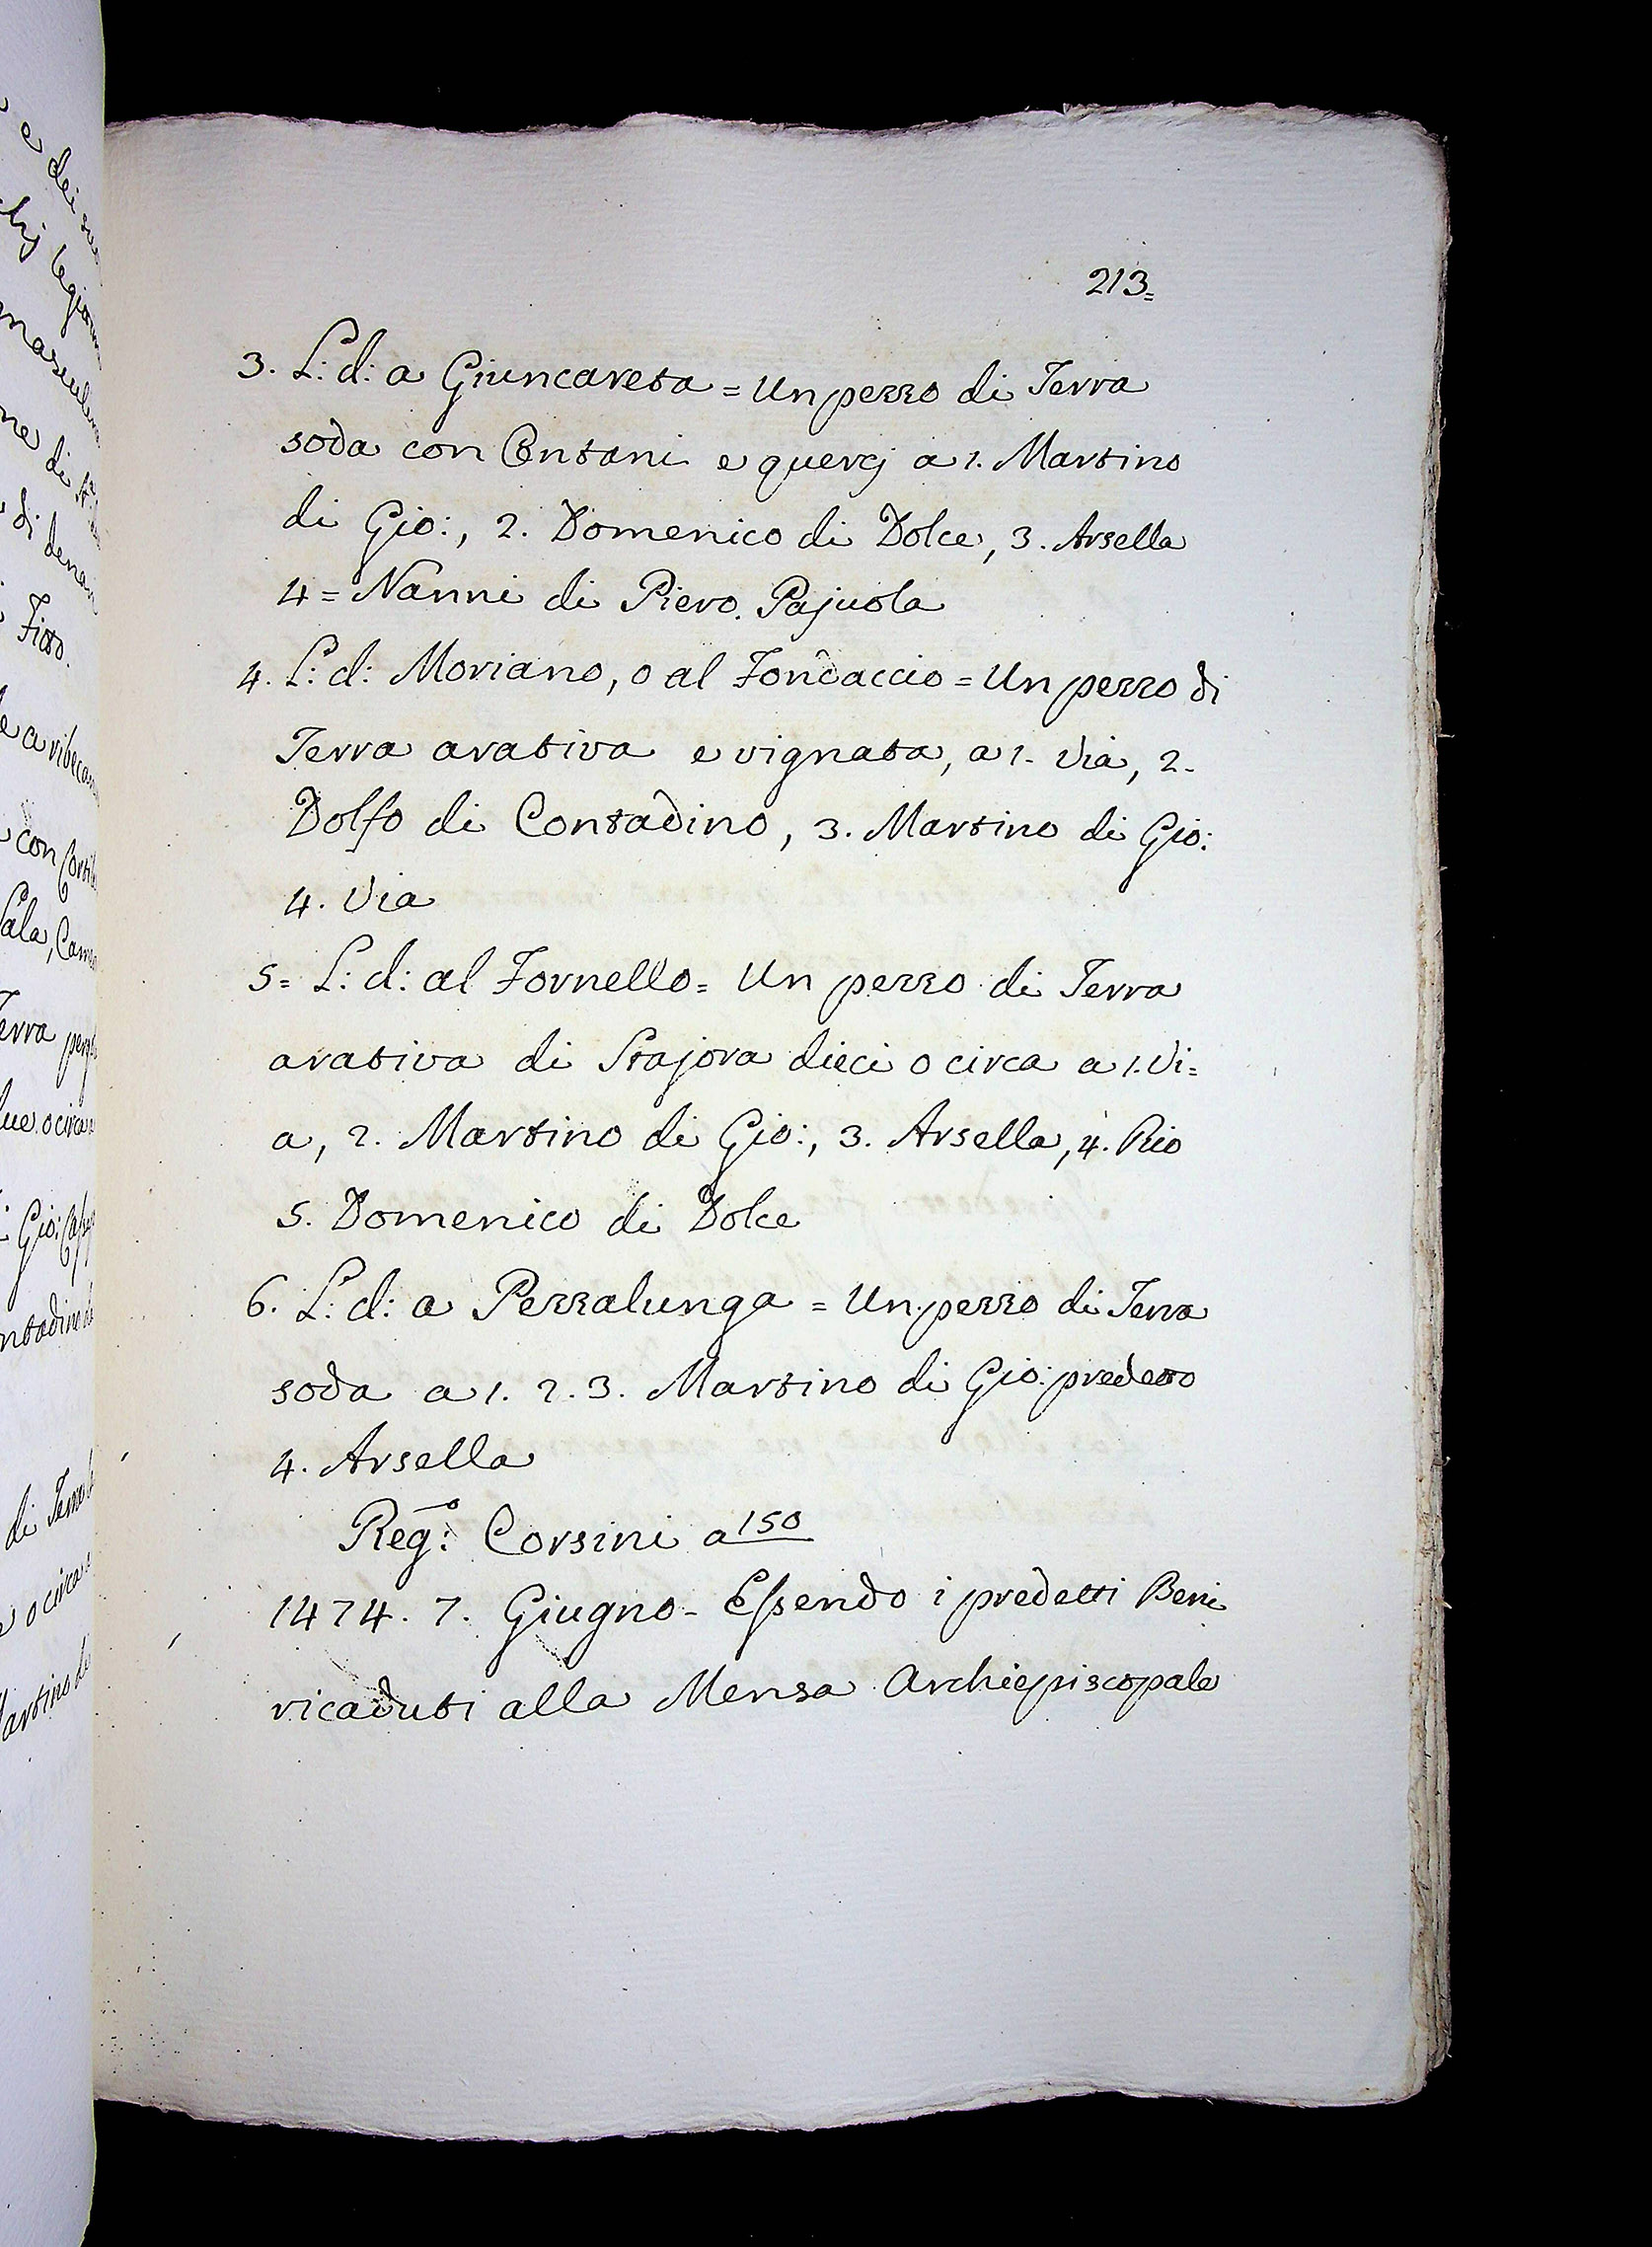 213=
3. L: d: a Giuncareta = Un pezzo di Terra
soda con Ontani e quercj a 1. Martino
di Gio:, 2. Domenico di Dolce, 3. Arsella
4 = Nanni di Piero. Pajuola
4. L: d: Moriano, o al Fondaccio = Un pezzo di
Terra arativa e vignata, a 1. Via, 2.
Dolfo di Contadino, 3. Martino di Gio:
4. Via
5 = L: d: al Fornello = Un pezzo di Terra
arativa di Stajora dieci o circa a 1. Vi=
a, 2. Martino di Gio:, 3. Arsella, 4. Rio
5. Domenico di Dolce
6. L: d: a Pezzalunga = Un pezzo di Terra
soda a 1. 2. 3. Martino di Gio: predetto
4. Arsella
Reg:º Corsini a 150
1474. 7. Giugno - Essendo i predetti Beni
ricaduti alla Mensa Archiepiscopale